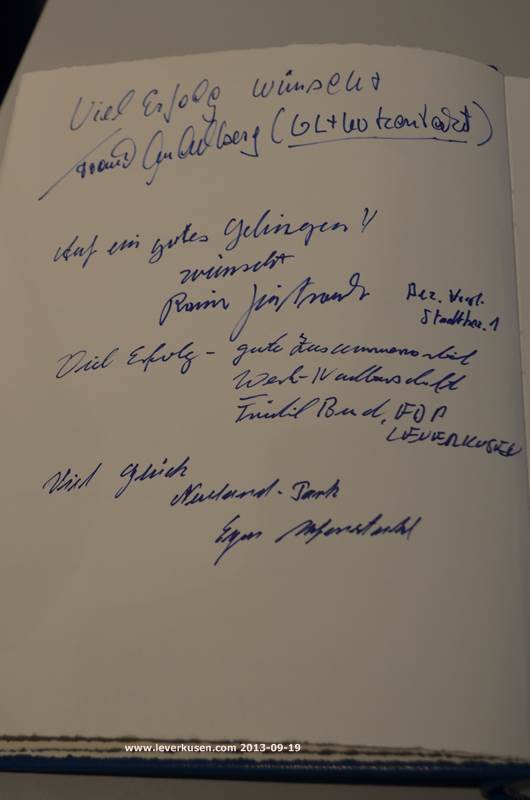 Viel Erfolg wünscht
Auf ein gutes Gelingen!!
wünscht
Rainer
Bez. Vert.
Stadtbez. 1
Viel Erfolg - gute Zusammenarbeit
Werk-Nachbarschaft
FDP
LEVERKUSEN
Viel Glück
Neuland-Park
Egon
www.leverkusen.com 2013-09-19